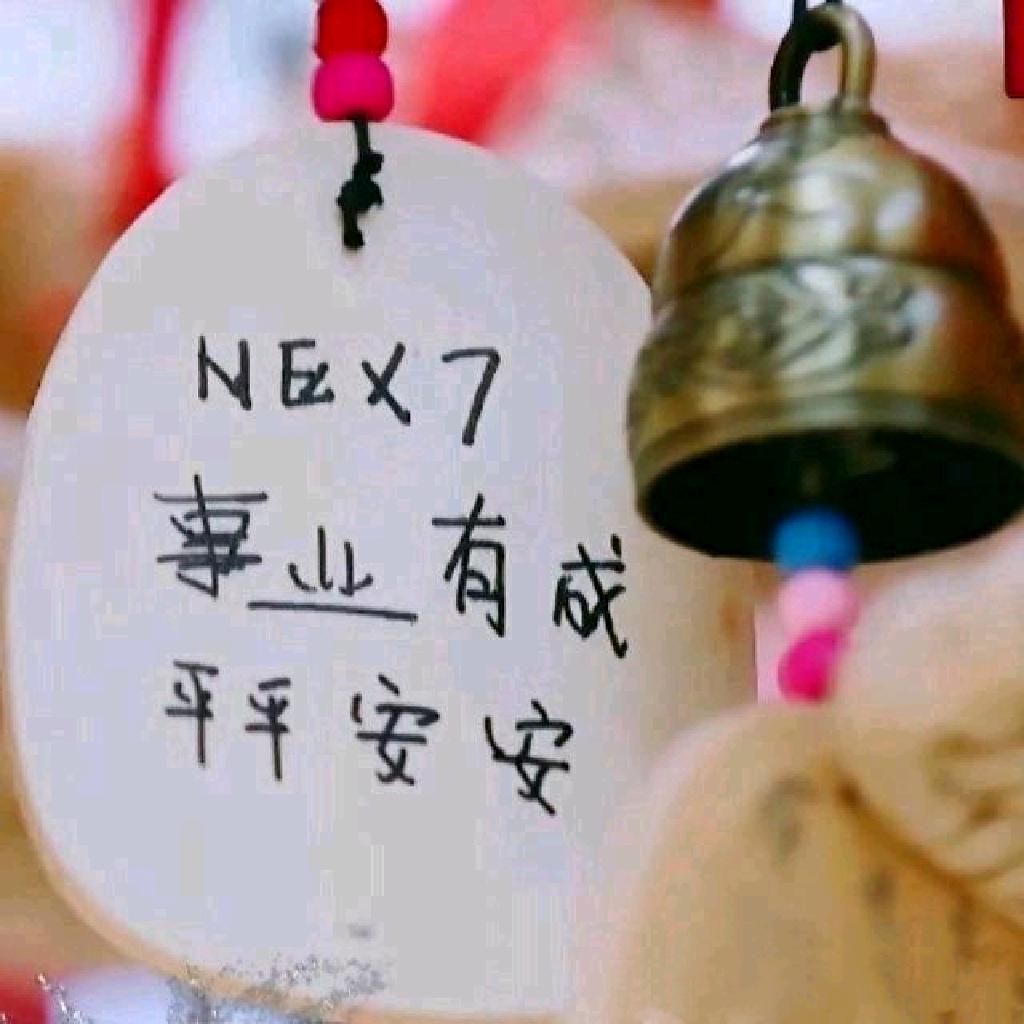 NEX7
事业有成
平平安安